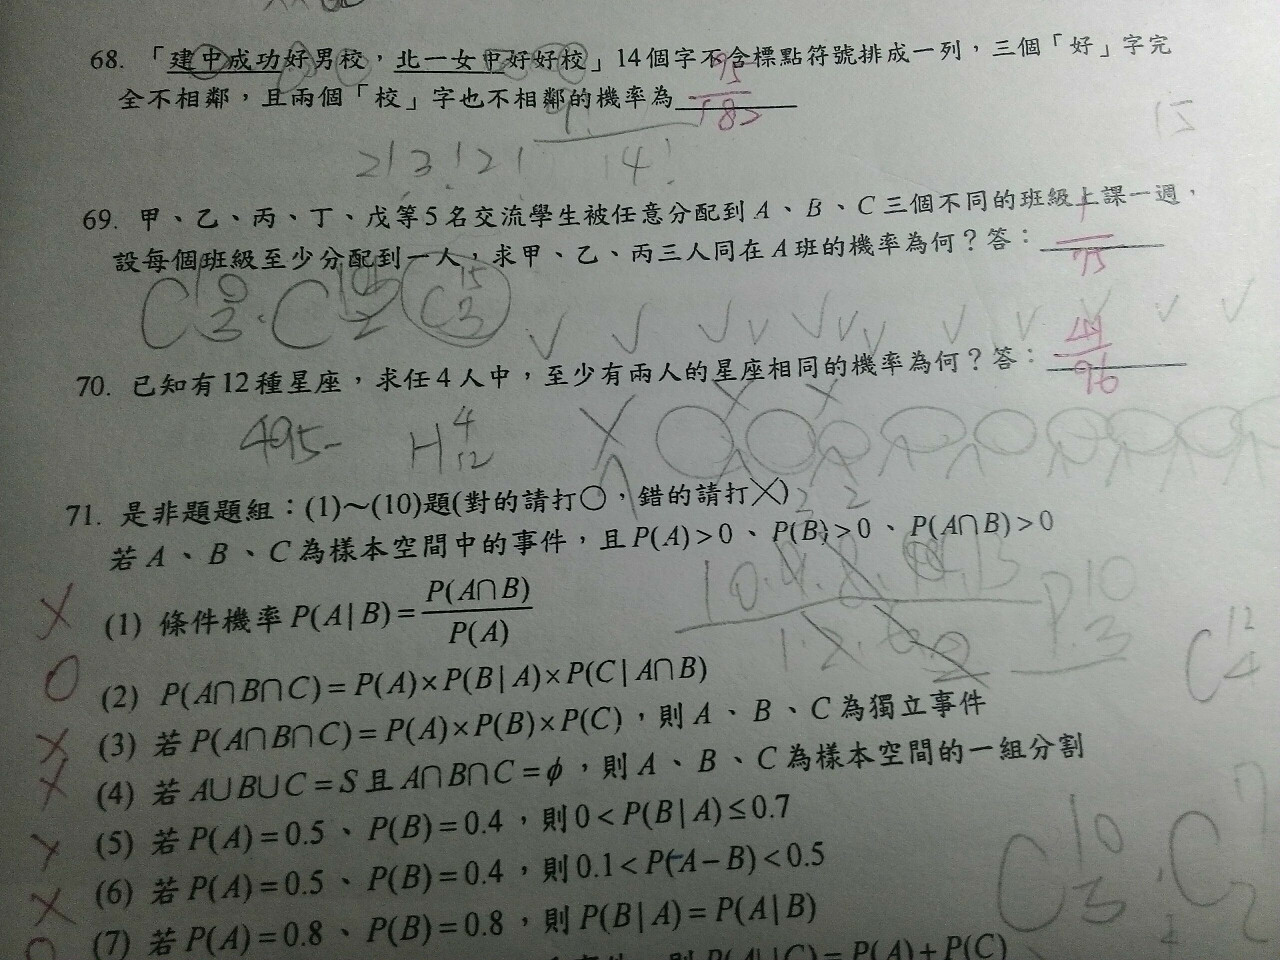 68. 「建中成功好男校，北一女中好好校」14個字不含標點符號排成一列，三個「好」字完
全不相鄰，且兩個「校」字也不相鄰的機率為 95/182
9!
2!3!2! 14!
15
69. 甲、乙、丙、丁、戊等5名交流學生被任意分配到A、B、C三個不同的班級上課一週，
設每個班級至少分配到一人，求甲、乙、丙三人同在A班的機率為何？答： 1/75
70. 已知有12種星座，求任4人中，至少有兩人的星座相同的機率為何？答： 41/96
495-
71. 是非題題組：(1)～(10)題(對的請打○，錯的請打╳)
若A、B、C為樣本空間中的事件，且P(A)>0、P(B)>0、P(A∩B)>0
X (1) 條件機率P(A|B)=P(A∩B)/P(A)
O (2) P(A∩B∩C)=P(A)×P(B|A)×P(C|A∩B)
X (3) 若P(A∩B∩C)=P(A)×P(B)×P(C)，則A、B、C為獨立事件
X (4) 若A∪B∪C=S且A∩B∩C=φ，則A、B、C為樣本空間的一組分割
X (5) 若P(A)=0.5、P(B)=0.4，則0<P(B|A)≤0.7
X (6) 若P(A)=0.5、P(B)=0.4，則0.1<P(A−B)<0.5
O (7) 若P(A)=0.8、P(B)=0.8，則P(B|A)=P(A|B)
事件，則P(A∪C)=P(A)+P(C)